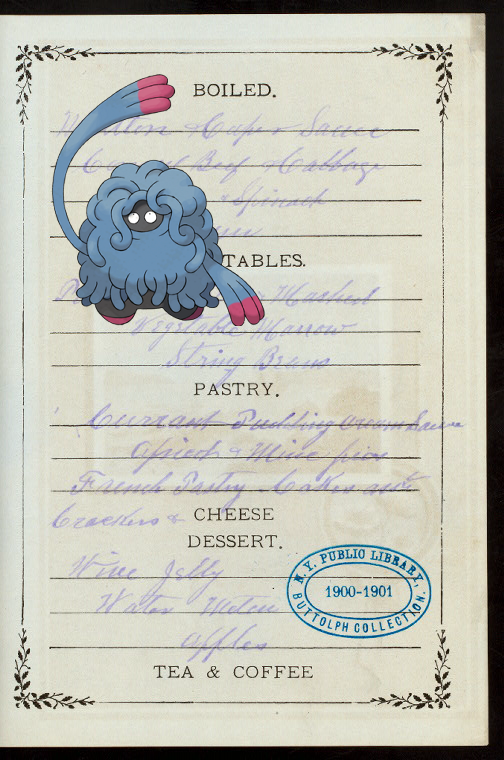 BOILED.
Mutton & Caper Sauce
Beef & Cabbage
& Spinach
TABLES.
Mashed
Vegetable Marrow
String Beans
PASTRY.
Currant Pudding Cream Sauce
& Mince pies
French Pastry Cakes
Crackers & CHEESE
DESSERT.
Wine Jelly
Water Melon
Apples
N. Y. PUBLIC LIBRARY,
1900-1901
BUTTOLPH COLLECTION.
TEA & COFFEE